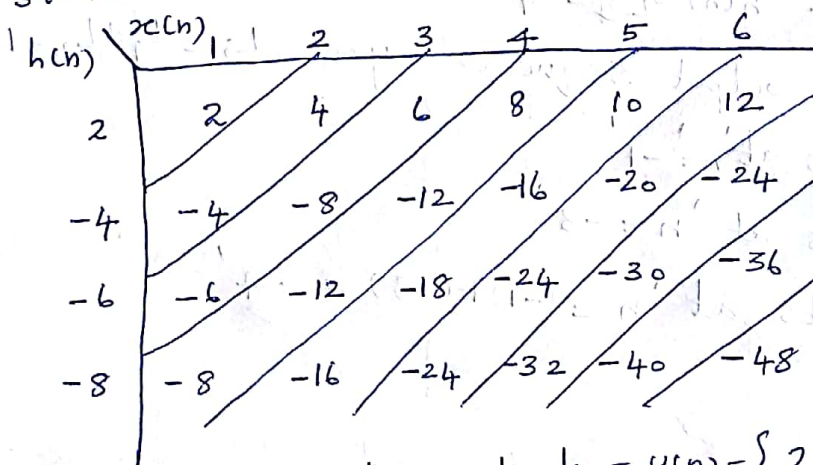 x(n) 1 2 3 4 5 6
h(n)
2 2 4 6 8 10 12
-4 -4 -8 -12 -16 -20 -24
-6 -6 -12 -18 -24 -30 -36
-8 -8 -16 -24 -32 -40 -48
y(n) = { 2